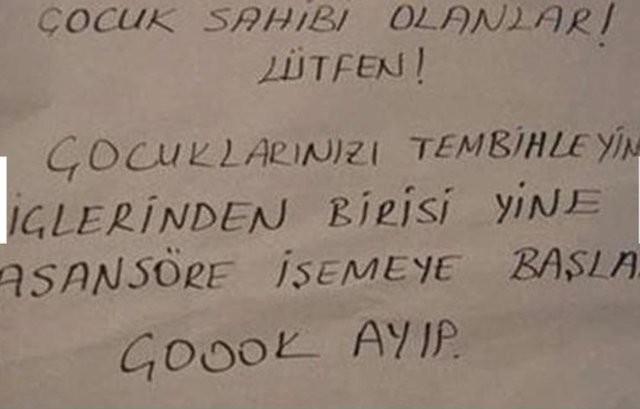 ÇOCUK SAHİBİ OLANLAR!
LÜTFEN!
ÇOCUKLARINIZI TEMBİHLEYİN
İÇLERİNDEN BİRİSİ YİNE
ASANSÖRE İŞEMEYE BAŞLA
ÇOOOK AYIP.